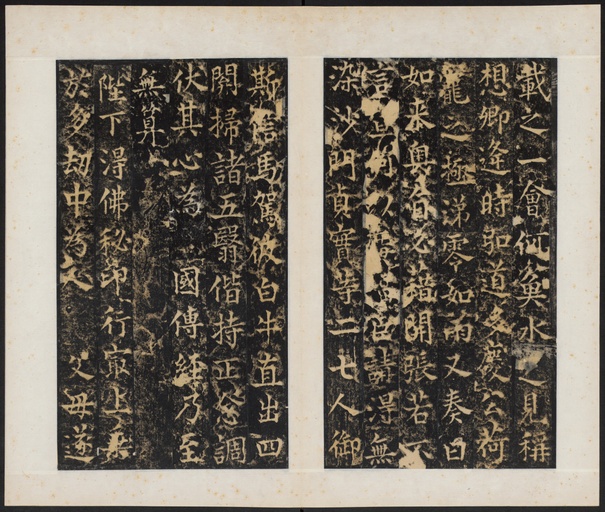 載之一會何奐水之見稱
想卿逢時知道多慶公荷
寵之極涕零如雨又奏曰
如來奧旨不藉開張若不
言 講得無
染沙門貞實等一七人御
斯 馬駕彼白牛直出四
關掃諸五翳偕持正念調
伏其心為 國傳經乃至
無算
陛下得佛秘印行最上
於多劫中為 父母遂